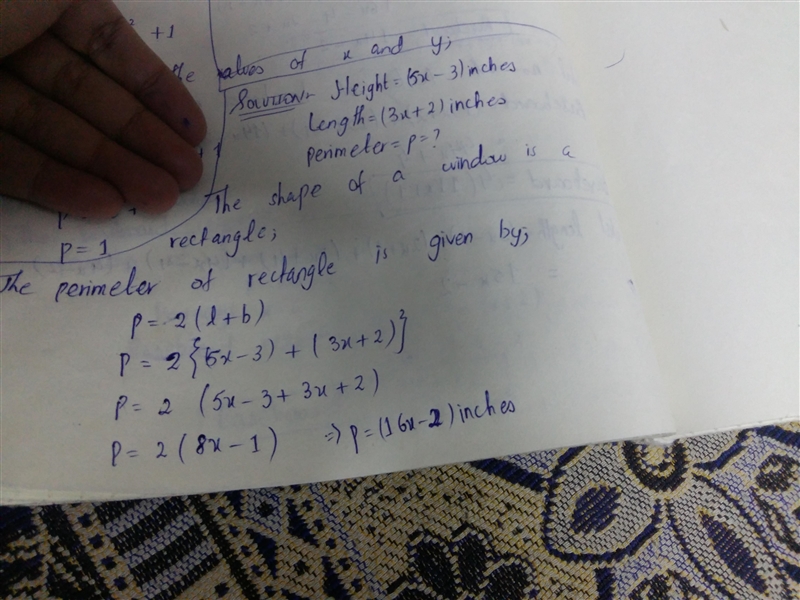 ² +1
the values of x and y;
Solution:- Height = (5x - 3) inches
length = (3x + 2) inches
perimeter = p = ?
+ 1
The shape of a window is a
p = 1 rectangle;
The perimeter of rectangle is given by;
p = 2 (l + b)
p = 2 {(5x - 3) + (3x + 2)}
p = 2 (5x - 3 + 3x + 2)
p = 2 (8x - 1) => p = (16x - 2) inches